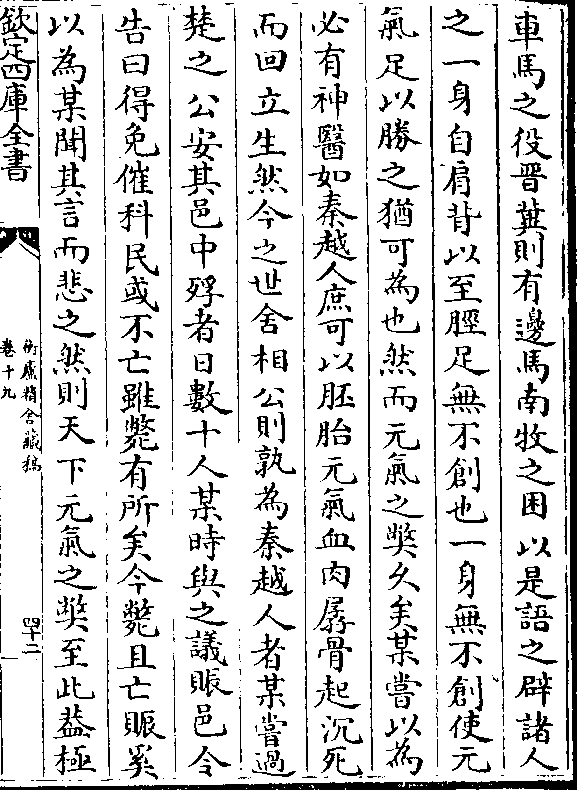 車馬之役晋冀則有邊馬南牧之困以是語之辟諸人
之一身自肩背以至脛足無不創也一身無不創使元
氣足以勝之猶可為也然而元氣之獘久矣某嘗以為
必有神醫如秦越人庶可以胚胎元氣血肉孱骨起沉死
而回立生然今之世舍相公則孰為秦越人者某嘗過
楚之公安其邑中殍者日數十人某時與之議賑邑令
告曰得免催科民或不亡雖斃有所矣今斃且亡賑奚
以為某聞其言而悲之然則天下元氣之獘至此葢極
欽定四庫全書
衡廬精舍藏稿
卷十九
四十二